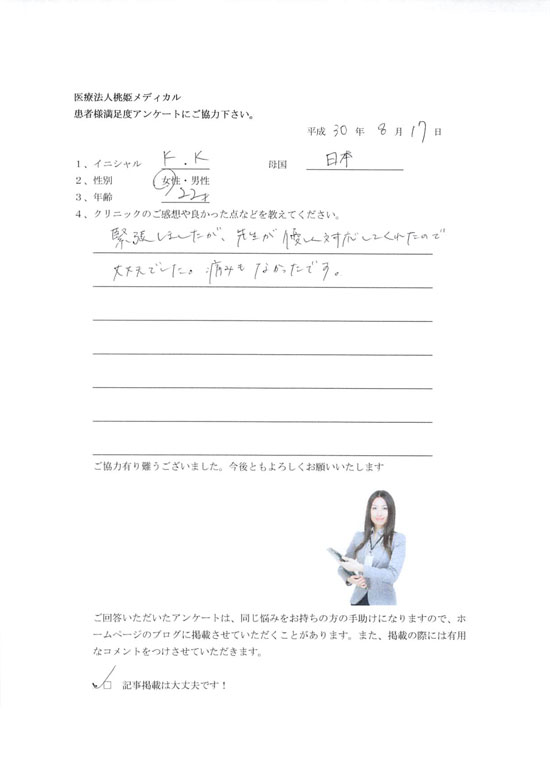 医療法人桃姫メディカル
患者様満足度アンケートにご協力下さい。
平成 30 年 8 月 17 日
1、イニシャル K.K 母国 日本
2、性別 女性・男性
3、年齢 22才
4、クリニックのご感想や良かった点などを教えてください。
緊張しましたが、先生が優しく対応してくれたので
大丈夫でした。痛みもなかったです。
ご協力有り難うございました。今後ともよろしくお願いいたします
ご回答いただいたアンケートは、同じ悩みをお持ちの方の手助けになりますので、ホ
ームページのブログに掲載させていただくことがあります。また、掲載の際には有用
なコメントをつけさせていただきます。
✓□ 記事掲載は大丈夫です！